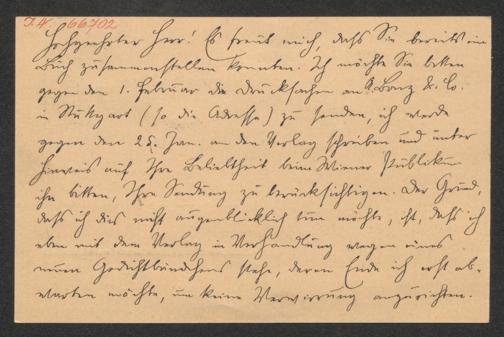 I. N. 66702
Hochgeehrter Herr! Es freut mich, daß Sie bereits ein
Buch zusammenstellen konnten. Ich möchte Sie bitten
gegen den 1. Februar die Drucksachen an A. Bonz & Co.
in Stuttgart (so die Adresse) zu senden, ich werde
gegen den 25. Jan. an den Verlag schreiben und unter
Hinweis auf Ihre Beliebtheit beim Wiener Publikum
ihn bitten, Ihre Sendung zu berücksichtigen. Der Grund,
daß ich dies nicht augenblicklich tun möchte, ist, daß ich
eben mit dem Verlag in Verhandlung wegen eines
neuen Gedichtbändchens stehe, deren Ende ich erst ab-
warten möchte, um keine Verwirrung anzurichten.